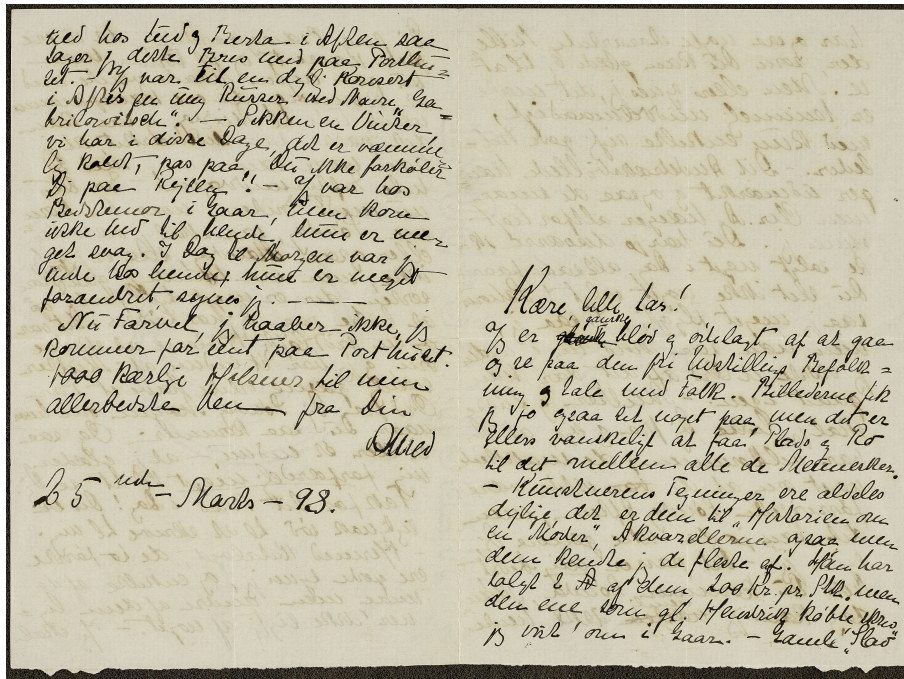 ned hos Lud og Berta i Aften saa
tager j. dette Brev med paa Posthu=
set. – Jeg var til en dejl. Konsert
i Aftes en ung Russer med Navn "Ga=
brilowitsch". – Sikken en Vinter
vi har i disse Dage, det er væmme=
lig koldt, pas paa, Du ikke forkøler
Dig paa Rejsen! – Jeg var hos
Bedstemor i Gaar, men kom
ikke ind til hende, hun er me=
get svag. I Dag te Morgen var j.
inde hos hende, hun er meget
forandret synes j. ———
Nu Farvel, j. haaber ikke, jeg
kommer for sent paa Posthuset.
1000 kærlige Hilsner til min
allerbedste Ven fra Din
25nde – Marts – 98.
Kære, lille Las!
ganske
Jeg er blød og ødelagt af at gaa
og se paa den fri Udstillings Befolk=
ning og tale med Folk. Billederne fik
jeg jo ogsaa set noget paa, men det er
ellers vanskeligt at faa Plads og Ro
til det mellem alle de Mennesker.
– Kunstnerens Tegninger ere aldeles
dejlige, det er dem til "Historien om
en Moder", Akvarellerne ogsaa men
dem kendte j. de fleste af. Han har
solgt 2 af dem 200 Kr. pr. Stk. men
den ene som gl. Hendrik købte skrev
jeg vist om i Gaar. – Gamle